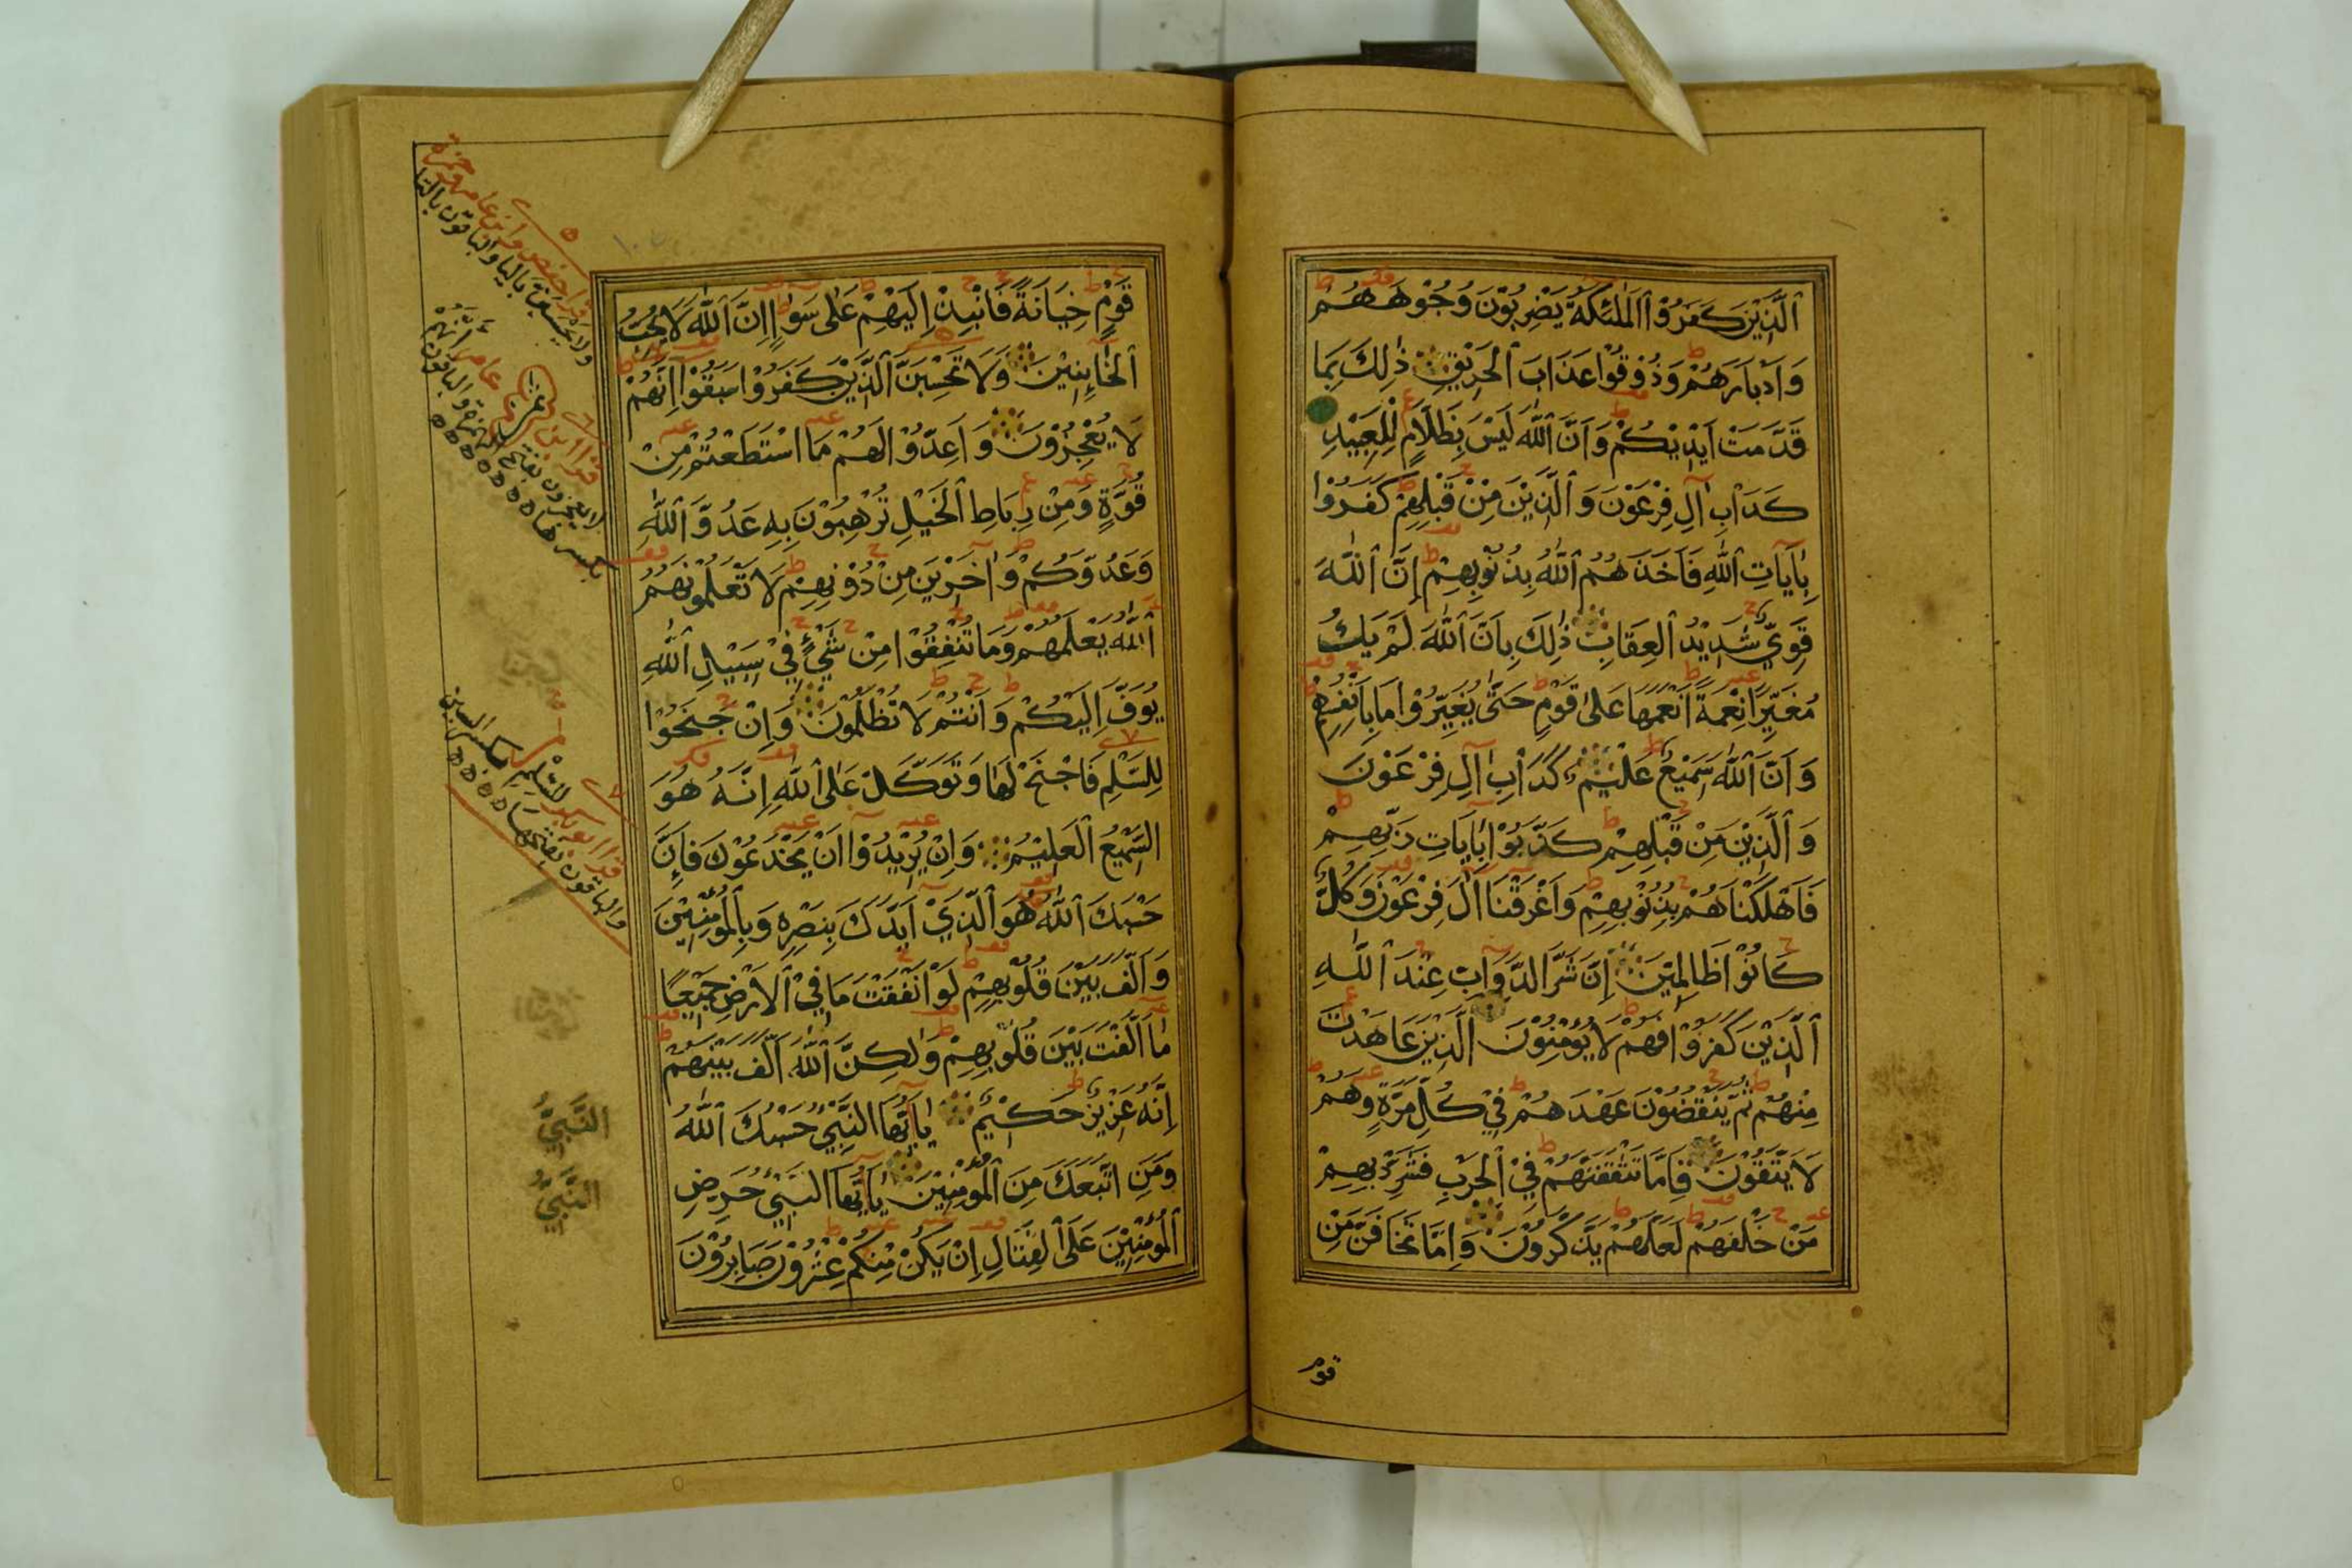 ٱلَّذِيْنَ كَفَرُوْا ٱلْمَلٰئِكَةُ يَضْرِبُوْنَ وُجُوْهَهُمْ
وَاَدْبَارَهُمْ وَذُوْقُوْا عَذَابَ ٱلْحَرِيْقِ ذٰلِكَ بِمَا
قَدَّمَتْ اَيْدِيْكُمْ وَاَنَّ ٱللّٰهَ لَيْسَ بِظَلَّامٍ لِّلْعَبِيْدِ
كَدَاْبِ اٰلِ فِرْعَوْنَ وَٱلَّذِيْنَ مِنْ قَبْلِهِمْ كَفَرُوْا
بِاٰيَاتِ ٱللّٰهِ فَاَخَذَهُمُ ٱللّٰهُ بِذُنُوْبِهِمْ اِنَّ ٱللّٰهَ
قَوِيٌّ شَدِيْدُ ٱلْعِقَابِ ذٰلِكَ بِاَنَّ ٱللّٰهَ لَمْ يَكُ
مُغَيِّرًا نِعْمَةً اَنْعَمَهَا عَلٰى قَوْمٍ حَتّٰى يُغَيِّرُوْا مَا بِاَنْفُسِهِمْ
وَاَنَّ ٱللّٰهَ سَمِيْعٌ عَلِيْمٌ كَدَاْبِ اٰلِ فِرْعَوْنَ
وَٱلَّذِيْنَ مِنْ قَبْلِهِمْ كَذَّبُوْا بِاٰيَاتِ رَبِّهِمْ
فَاَهْلَكْنَاهُمْ بِذُنُوْبِهِمْ وَاَغْرَقْنَا اٰلَ فِرْعَوْنَ وَكُلٌّ
كَانُوْا ظَالِمِيْنَ اِنَّ شَرَّ الدَّوَابِّ عِنْدَ ٱللّٰهِ
ٱلَّذِيْنَ كَفَرُوْا فَهُمْ لَا يُؤْمِنُوْنَ اَلَّذِيْنَ عَاهَدْتَ
مِنْهُمْ ثُمَّ يَنْقُضُوْنَ عَهْدَهُمْ فِيْ كُلِّ مَرَّةٍ وَهُمْ
لَا يَتَّقُوْنَ فَاِمَّا تَثْقَفَنَّهُمْ فِيْ ٱلْحَرْبِ فَشَرِّدْ بِهِمْ
مَنْ خَلْفَهُمْ لَعَلَّهُمْ يَذَّكَّرُوْنَ وَاِمَّا تَخَافَنَّ مِنْ
قوم
قَوْمٍ خِيَانَةً فَانْبِذْ اِلَيْهِمْ عَلٰى سَوَاءٍ اِنَّ ٱللّٰهَ لَا يُحِبُّ
ٱلْخَائِنِيْنَ وَلَا تَحْسِبَنَّ ٱلَّذِيْنَ كَفَرُوْا سَبَقُوْا اِنَّهُمْ
لَا يُعْجِزُوْنَ وَاَعِدُّوْا لَهُمْ مَا اسْتَطَعْتُمْ مِنْ
قُوَّةٍ وَمِنْ رِبَاطِ ٱلْخَيْلِ تُرْهِبُوْنَ بِهٖ عَدُوَّ ٱللّٰهِ
وَعَدُوَّكُمْ وَاٰخَرِيْنَ مِنْ دُوْنِهِمْ لَا تَعْلَمُوْنَهُمْ
ٱللّٰهُ يَعْلَمُهُمْ وَمَا تُنْفِقُوْا مِنْ شَيْءٍ فِيْ سَبِيْلِ ٱللّٰهِ
يُوَفَّ اِلَيْكُمْ وَاَنْتُمْ لَا تُظْلَمُوْنَ وَاِنْ جَنَحُوْا
لِلسَّلْمِ فَاجْنَحْ لَهَا وَتَوَكَّلْ عَلٰى ٱللّٰهِ اِنَّهُ هُوَ
السَّمِيْعُ ٱلْعَلِيْمُ وَاِنْ يُرِيْدُوْا اَنْ يَخْدَعُوْكَ فَاِنَّ
حَسْبَكَ ٱللّٰهُ هُوَ ٱلَّذِيْ اَيَّدَكَ بِنَصْرِهٖ وَبِٱلْمُؤْمِنِيْنَ
وَاَلَّفَ بَيْنَ قُلُوْبِهِمْ لَوْ اَنْفَقْتَ مَا فِيْ ٱلْاَرْضِ جَمِيْعًا
مَا اَلَّفْتَ بَيْنَ قُلُوْبِهِمْ وَلٰكِنَّ ٱللّٰهَ اَلَّفَ بَيْنَهُمْ
اِنَّهُ عَزِيْزٌ حَكِيْمٌ يٰاَيُّهَا النَّبِيُّ حَسْبُكَ ٱللّٰهُ
وَمَنِ اتَّبَعَكَ مِنَ ٱلْمُؤْمِنِيْنَ يٰاَيُّهَا النَّبِيُّ حَرِّضِ
ٱلْمُؤْمِنِيْنَ عَلَى ٱلْقِتَالِ اِنْ يَكُنْ مِنْكُمْ عِشْرُوْنَ صَابِرُوْنَ
قرا حفص وابن عامر وحمزة
ولا يحسبن باليا والباقون بالتا
قرا ابن عامر اَنَّهُمْ
لا يعجزون بفتح الهمزة والباقون
بكسرها
قرا ابو بكر للسِّلم بكسر السين
والباقون بفتحها
النَّبِيُّ
النَّبِيُّ